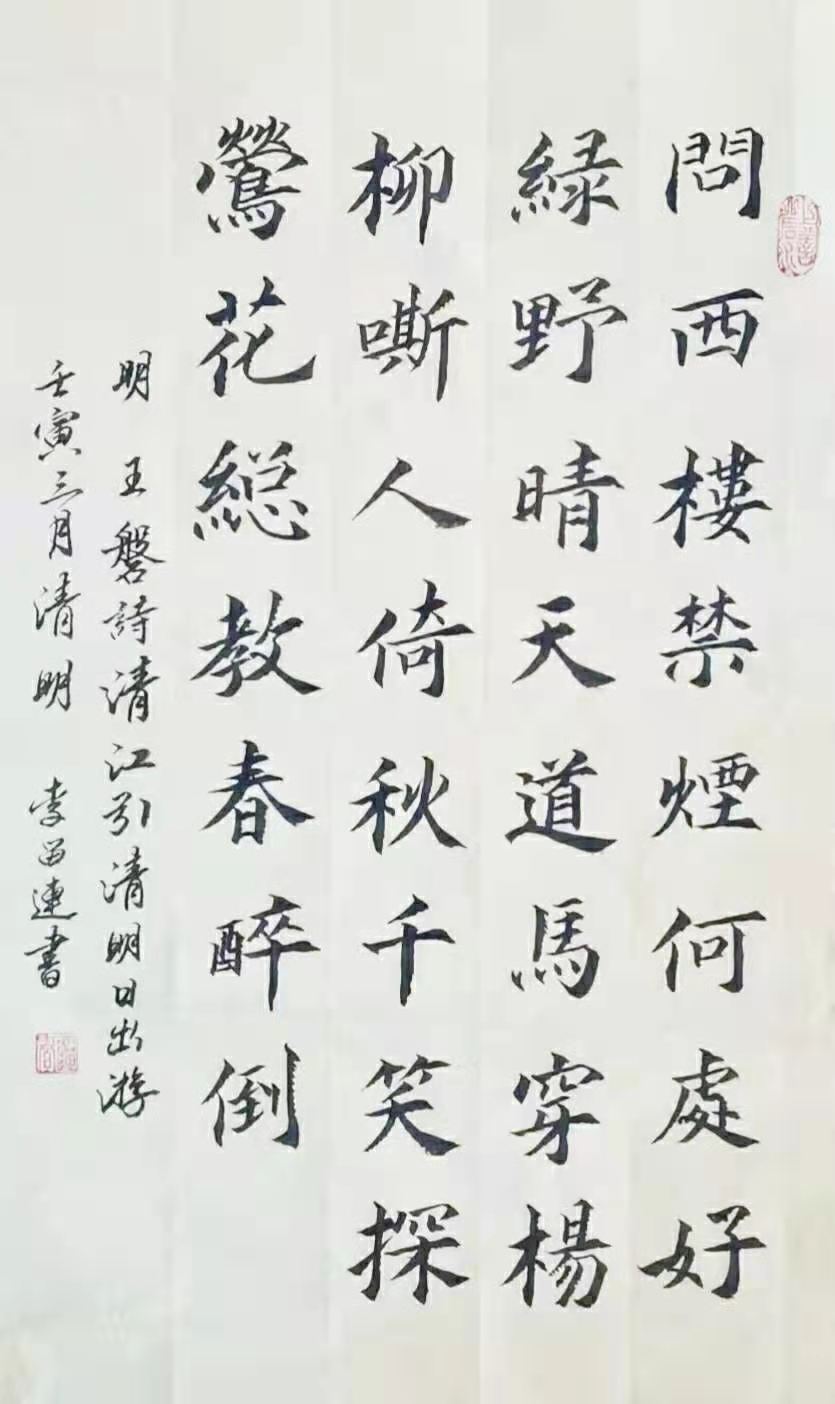 問西樓禁煙何處好
緑野晴天道馬穿楊
柳嘶人倚秋千笑探
鶯花総教春醉倒
明 王磐詩清江引清明日出游
壬寅三月清明 李留連書